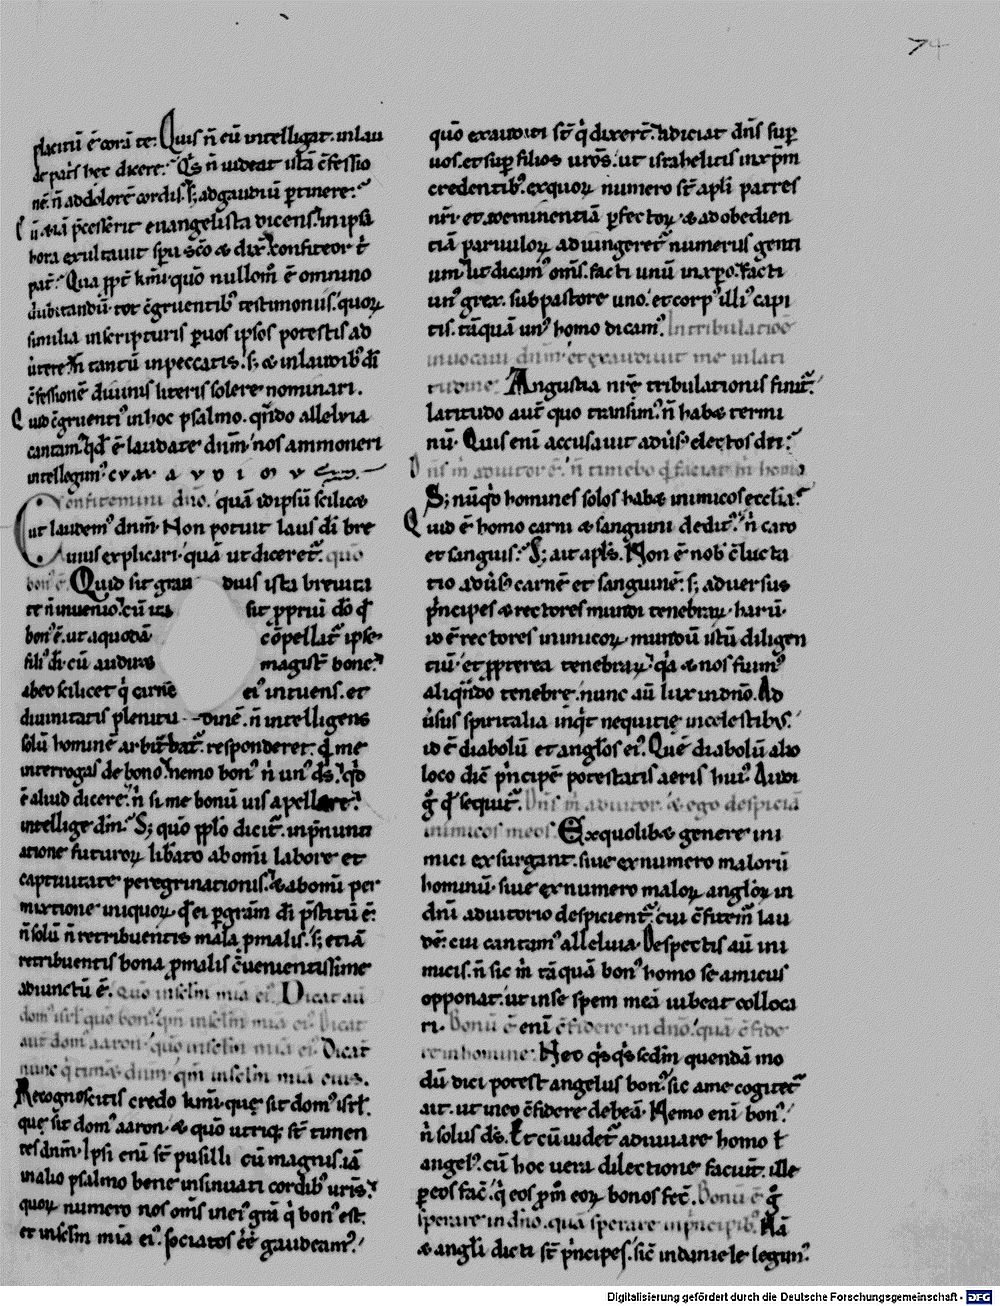 74
placitū ē corā te. Quis ñ cū intelligat. in lau
de pat̄s hec dicere? Qͥs ñ uideat istā c̄fessio
nē. ñ ad dolorē cordis. sꝫ ad gaudiū ꝑtinere?
euangelista dicens. in ipsa
hora exultauit sp̄u sc̄o ⁊ dix̄. confiteor t̄
pat̄. Qua ꝓpt̄ km̄i quō nullom̄ ē omnino
dubitandū. tot c̄gruentibꝰ testimoniis. quoꝝ
similia in scripturis ꝑ uos ipsos potestis ad
ūtere. ñ tantū in peccatis. sꝫ ⁊ in laudibꝰ dī
c̄fessionē diuinis literis solere nominari.
Quid c̄gruentiꝰ in hoc psalmo. qn̄do alleluia
cantam̄. qd̄ ē laudate dn̄m. nos ammoneri
intellegimꝰ.
Confitemini dn̄o. quā id ipsū scilicet
ut laudemꝰ dn̄m. Non potuit laus dī bre
uius explicari. quā ut diceret̄. quō
bonꝰ ē. Quid sit gran diuis ista breuita
te ñ inuenio. cū ita sit ꝓpriū dō qd̄
bonꝰ ē. ut a quodā c̄pellatꝰ ipse
filiꝰ dī. cū audire magist̄ bone.
abeo scilicet qͥ carnē eiꝰ intuens. et
diuinitatis plenitu dinē. ñ intelligens
solū hominē arbit̄bat̄. responderet. qd̄ me
interrogas de bono. nemo bonꝰ nͥ unꝰ ds̄. qd̄
ē aliud dicere. nͥ si me bonū uis apellare.
intellige dm̄. Sꝫ quō pp̄lo dicit̄. in p̄nunti
atione futuroꝝ liƀato ab om̄i labore et
captiuitate peregrinationis. ⁊ ab om̄i per
mixtione iniquoꝝ. qd̄ ei ꝑ grām dī p̄stitū ē.
ñ solū ñ retribuentis mala ꝓ malis. sꝫ etiā
retribuentis bona ꝓ malis. c̄uenientissime
adiunctū ē. quō in sc̄lm mīa eiꝰ. Dicat aū
domꝰ isrl̄. quō bonꝰ. qm̄ in sc̄lm mīa eiꝰ. Dicat
aūt domꝰ aaron. quō in sc̄lm mīa eiꝰ. Dicāt
nunc qͥ timēt dn̄m. qm̄ in sc̄lm mīa eius.
Recognoscitis credo km̄i. quę sit domꝰ isrl̄.
quę sit domꝰ aaron. ⁊ quō utriqꝫ st̄ timen
tes dn̄m. Ipsi eni st̄ pusilli cū magnis. iā
in alio psalmo bene insinuati cordibꝰ ur̄is.
quoꝝ numero nos om̄s in eiꝰ grā qͥ bonꝰ est.
et in sc̄lm mīa eiꝰ. sociatos eē gaudeamꝰ.
quō exauditi st̄ qͥ dixert̄. Adiciat dn̄s suꝑ
uos. et suꝑ filios uros. ut isrhelitis in xp̄m
credentibꝰ. ex quoꝝ numero st̄ apl̄i patres
nr̄i. et ad eminentiā ꝑfectoꝝ. ⁊ ad obedien
tiā paruuloꝝ adiungeret̄ numerus genti
um. ut dicamꝰ om̄s. facti unū in xp̄o. facti
unꝰ grex. sub pastore uno. et corpꝰ illiꝰ capi
tis. tāquā unꝰ homo dicamꝰ. In tribulatioē
inuocaui dn̄m. et exaudiuit me in lati
tudine. Angustia nr̄ę tribulationis finit̄.
latitudo aūt quo transimꝰ. ñ habet termi
nū. Quis eni accusauit adūsꝰ electos dei.
Dn̄s m̄ adiutor ē. ñ timebo qd̄ faciat m̄ homo.
Sꝫ nūqͥd homines solos habet inimicos eccl̄ia.
Quid ē homo carni ⁊ sanguini deditꝰ. nͥ caro
et sanguis. Sꝫ ait apl̄s. Non ē nobꝰ c̄lucta
tio adūsꝰ carnē et sanguinē. sꝫ aduersus
p̄ncipes ⁊ rectores mundi tenebraꝝ harū.
id ē rectores inimicoꝝ. mundū istū diligen
tiū. et ꝓpterea tenebraꝝ. qͣ ⁊ nos fuimꝰ
aliqn̄do tenebre. nunc aū lux in dn̄o. Ad
ūsus spiritalia inqͥt nequitię in celestibꝰ.
id ē diabolū et angl̄os eiꝰ. Quē diabolū alio
loco dic̄ p̄ncipē potestatis aeris huiꝰ. Audi
g̊ qd̄ sequit̄. Dn̄s m̄ adiutor. ⁊ ego despiciā
inimicos meos. Ex quolibet genere ini
mici exsurgant. siue ex numero malorū
hominū. siue ex numero maloꝝ angl̄oꝝ. in
dn̄i adiutorio despicient̄. cui c̄fitem̄ lau
dē. cui cantamꝰ alleluia. Despectis aū ini
micis. ñ sic m̄ tāquā bonꝰ homo se amicus
opponat. ut in se spem meā iubeat colloca
ri. Bonū ē eni c̄fidere in dn̄o. quā c̄fide
re in homine. Nec qͥsqͥs sc̄dm quendā mo
dū dici potest angelus bonꝰ. sic a me cogitet̄
ait. ut in eo c̄fidere debeā. Nemo eni bonꝰ
nͥ solus ds̄. Et cū uidet̄ adiuuare homo ł
angelꝰ. cū hoc uera dilectione faciūt. ille
ꝑ eos fac̄. qͥ eos ꝓ m̄ eoꝝ bonos fec̄. Bonū ē g̊
sperare in dn̄o. quā sperare in p̄ncipibꝰ. Nā
⁊ angl̄i dicti st̄ p̄ncipes. sic̄ in daniele legimꝰ.
Digitalisierung gefördert durch die Deutsche Forschungsgemeinschaft - DFG